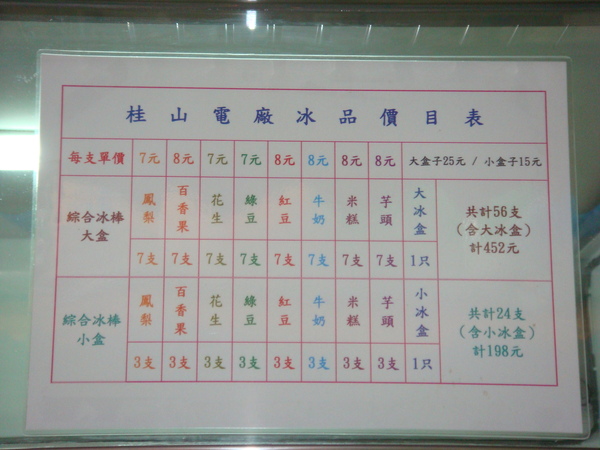 桂山電廠冰品價目表
每支單價 7元 8元 7元 7元 8元 8元 8元 8元 大盒子25元 / 小盒子15元
綜合冰棒大盒 鳳梨 百香果 花生 綠豆 紅豆 牛奶 米糕 芋頭 大冰盒 共計56支(含大冰盒)計452元
7支 7支 7支 7支 7支 7支 7支 7支 1只
綜合冰棒小盒 鳳梨 百香果 花生 綠豆 紅豆 牛奶 米糕 芋頭 小冰盒 共計24支(含小冰盒)計198元
3支 3支 3支 3支 3支 3支 3支 3支 1只